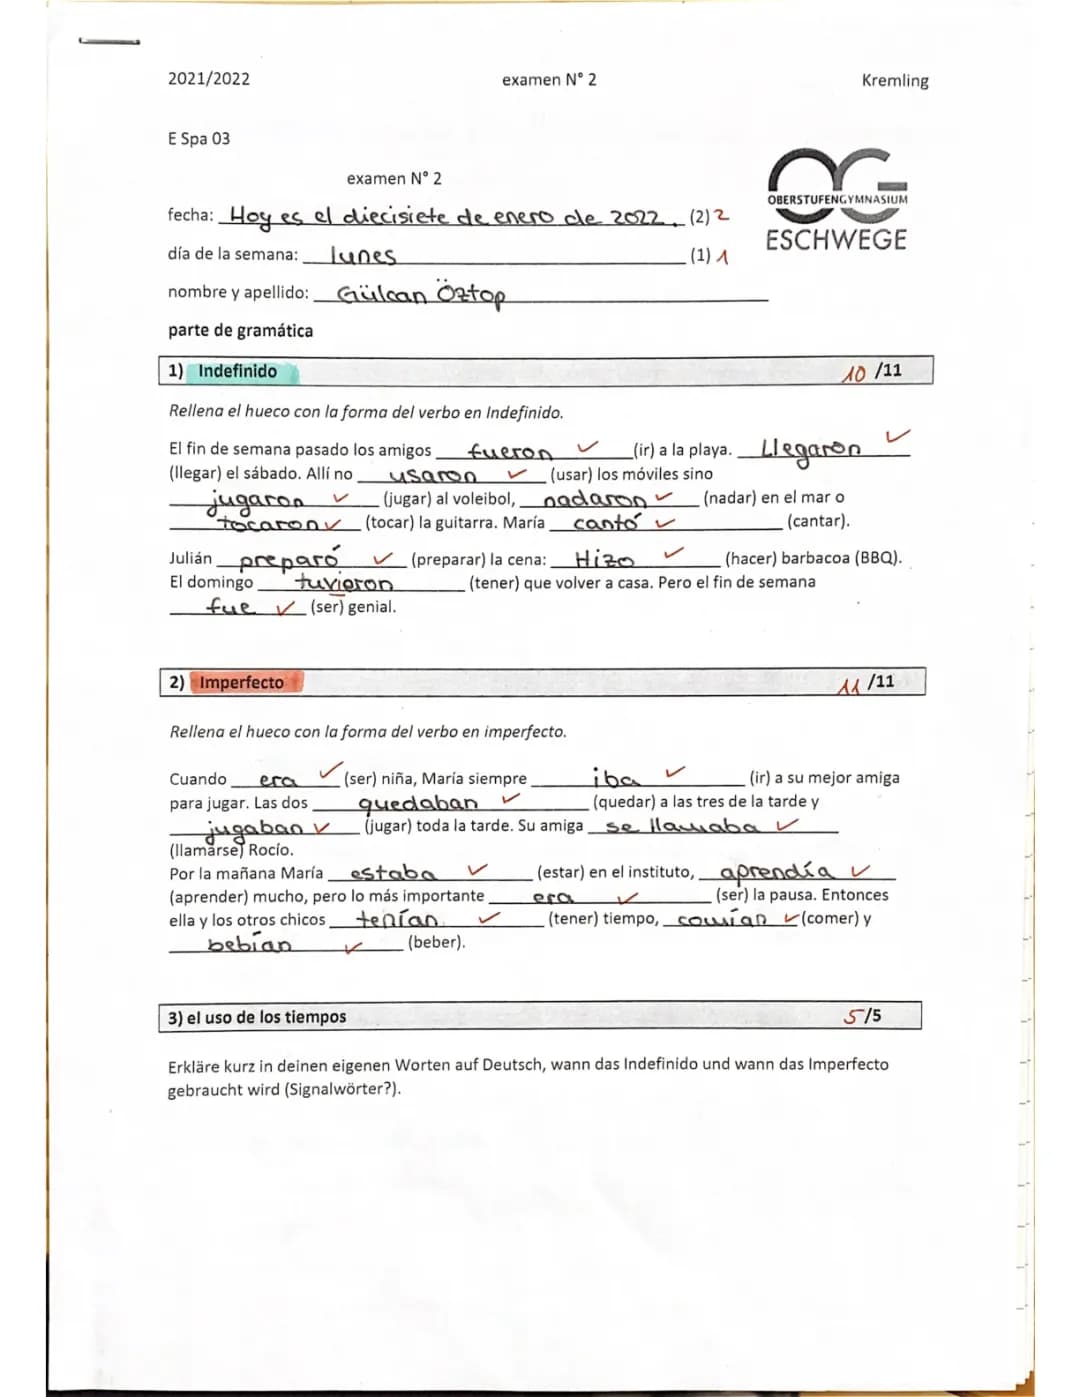 2021/2022 examen N° 2 Kremling
E Spa 03
examen N° 2
OG
OBERSTUFENGYMNASIUM
ESCHWEGE
fecha: Hoy es el diecisiete de enero de 2022. (2) 2
día de la semana: lunes (1) 1
nombre y apellido: Gülcan Öztop
parte de gramática
1) Indefinido 10 /11
Rellena el hueco con la forma del verbo en Indefinido.
El fin de semana pasado los amigos fueron ✓ (ir) a la playa. Llegaron ✓
(llegar) el sábado. Allí no usaron ✓ (usar) los móviles sino
jugaron ✓ (jugar) al voleibol, nadaron ✓ (nadar) en el mar o
tocaron ✓ (tocar) la guitarra. María cantó ✓ (cantar).
Julián preparó ✓ (preparar) la cena: Hizo ✓ (hacer) barbacoa (BBQ).
El domingo tuvieron (tener) que volver a casa. Pero el fin de semana
fue ✓ (ser) genial.
2) Imperfecto 11 /11
Rellena el hueco con la forma del verbo en imperfecto.
Cuando era ✓ (ser) niña, María siempre iba ✓ (ir) a su mejor amiga
para jugar. Las dos quedaban ✓ (quedar) a las tres de la tarde y
jugaban ✓ (jugar) toda la tarde. Su amiga se llamaba ✓
(llamarse) Rocío.
Por la mañana María estaba ✓ (estar) en el instituto, aprendía ✓
(aprender) mucho, pero lo más importante era ✓ (ser) la pausa. Entonces
ella y los otros chicos tenían ✓ (tener) tiempo, comían ✓ (comer) y
bebían ✓ (beber).
3) el uso de los tiempos 5/5
Erkläre kurz in deinen eigenen Worten auf Deutsch, wann das Indefinido und wann das Imperfecto
gebraucht wird (Signalwörter?).